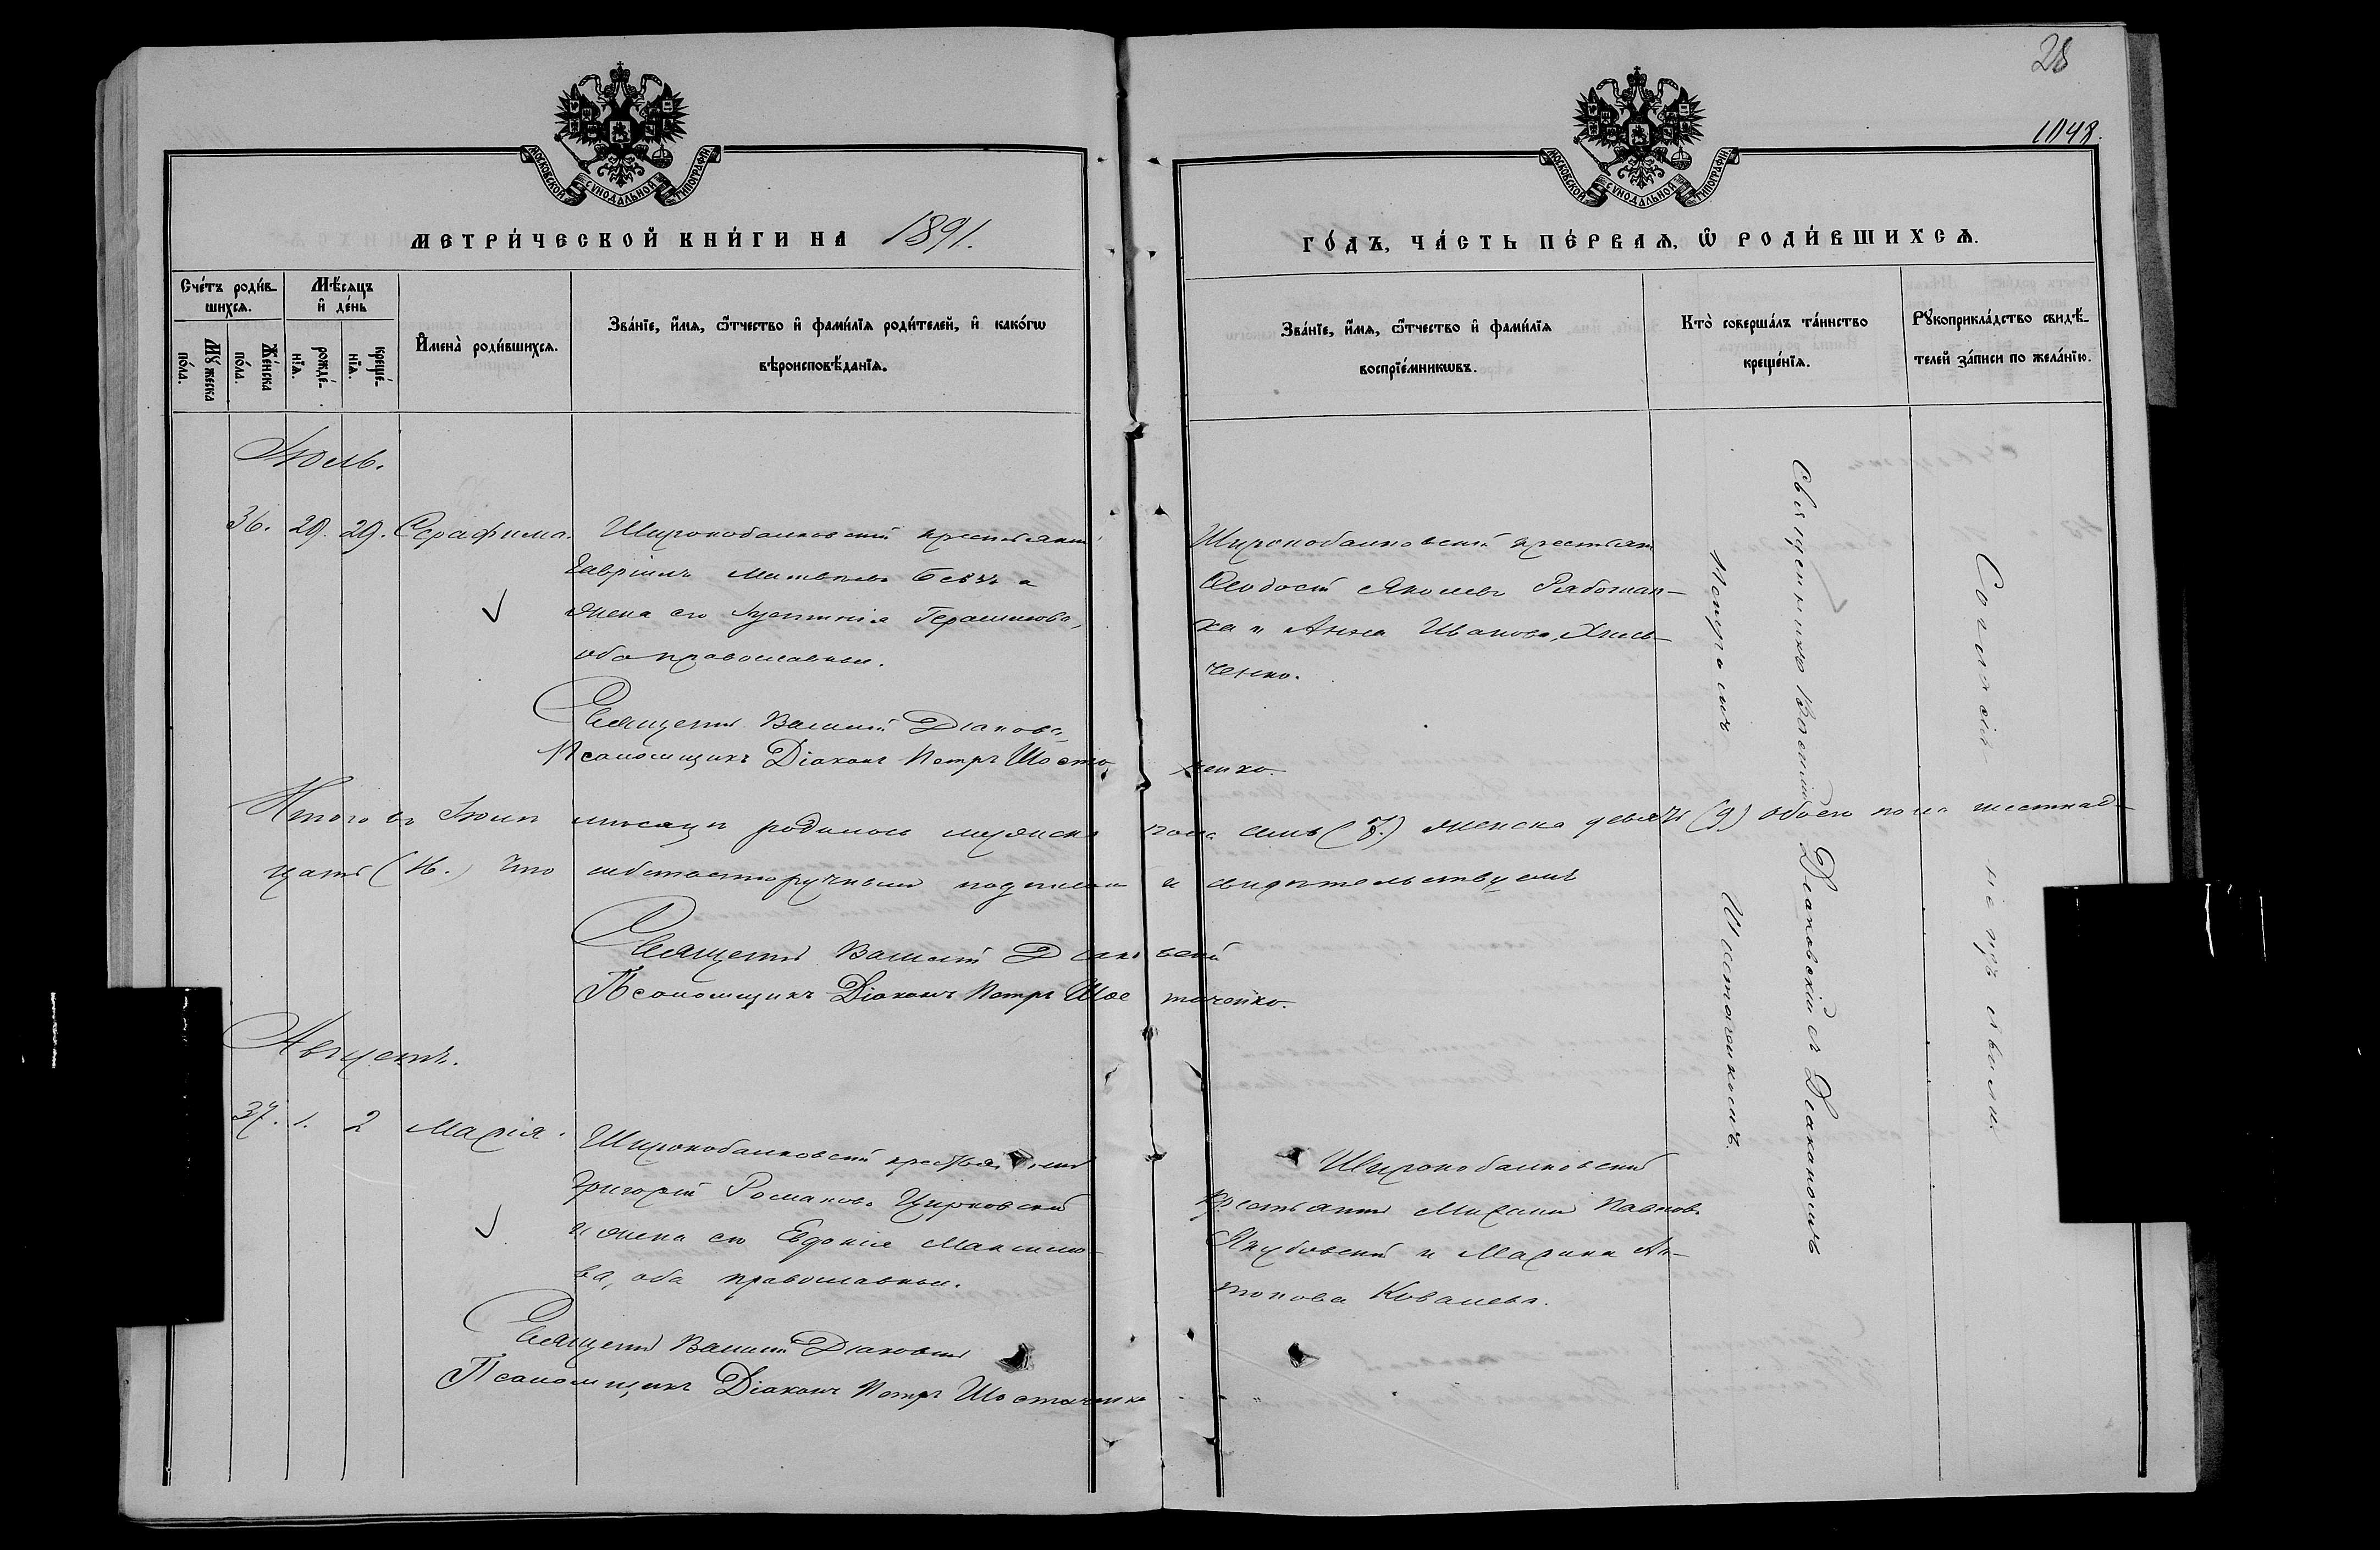 28
1048.
МОСКОВСКОЙ СУНОДАЛЬНОЙ ТИПОГРАФІИ
МОСКОВСКОЙ СУНОДАЛЬНОЙ ТИПОГРАФІИ
МЕТРИ́ЧЕСКОЙ КНИ́ГИ НА 1891.
ГО́ДЪ, ЧА́СТЬ ПЕ́РВАѦ, Ѽ РОДИ́ВШИХСѦ.
Сче́тъ роди́в-
шихсѧ.
Мѣ́сяцъ
и҆ де́нь
Мꙋ́жеска
по́ла.
Же́нска
по́ла.
рожде́-
нїѧ.
креще́-
нїѧ.
И҆мена̀ роди́вшихсѧ.
Зва́нїе, и҆́мѧ, ѻ҆́тчество и҆ фами́лїѧ роди́телей, и҆ како́гѡ
вѣроисповѣ́данїѧ.
Зва́нїе, и҆́мѧ, ѻ҆́тчество и҆ фами́лїѧ
воспрїе́мникѡвъ.
Кто̀ соверша́лъ та́инство
креще́нїѧ.
Рꙋкоприкла́дство свидѣ́-
телей за́писи по жела́нїю.
Іюль.
36. 29. 29. Серафима. Широкобалковскій крестьянинъ
Гавріилъ Матвѣевъ и
жена его Герасимова,
оба православные.
Священникъ Василій Діаковс
Псаломщикъ Діаконъ Петръ Шоста
ченко.
Широкобалковскій крестьян
Ѳеодосій Яковлевъ Работан-
ка и Анна Иванова
ченко.
Итого въ Іюлѣ мѣсяцѣ родилось мужска пола семь (7.) женска девять (9) обоего пола шестнад-
цать (16.) Что собственноручнымъ подписомъ и свидѣтельствуемъ
Священникъ Василій Діаковскій
Псаломщикъ Діаконъ Петръ Шостаченко.
Августъ.
37. 1. 2 Марія. Широкобалковскій крестьянинъ
Григорій Романовъ Цирковскій
и жена его Евдокія Максимо-
ва, оба православные.
Священникъ Василій Діаковскій
Псаломщикъ Діаконъ Петръ Шостаченко
Широкобалковскій
крестьянинъ Михаилъ Павловъ
Якубовскій и Марина Ан-
тонова Ковалева.
Священникъ Василій Діаковскій съ Діакономъ
Петромъ Шостаченкомъ.
не изъявили.